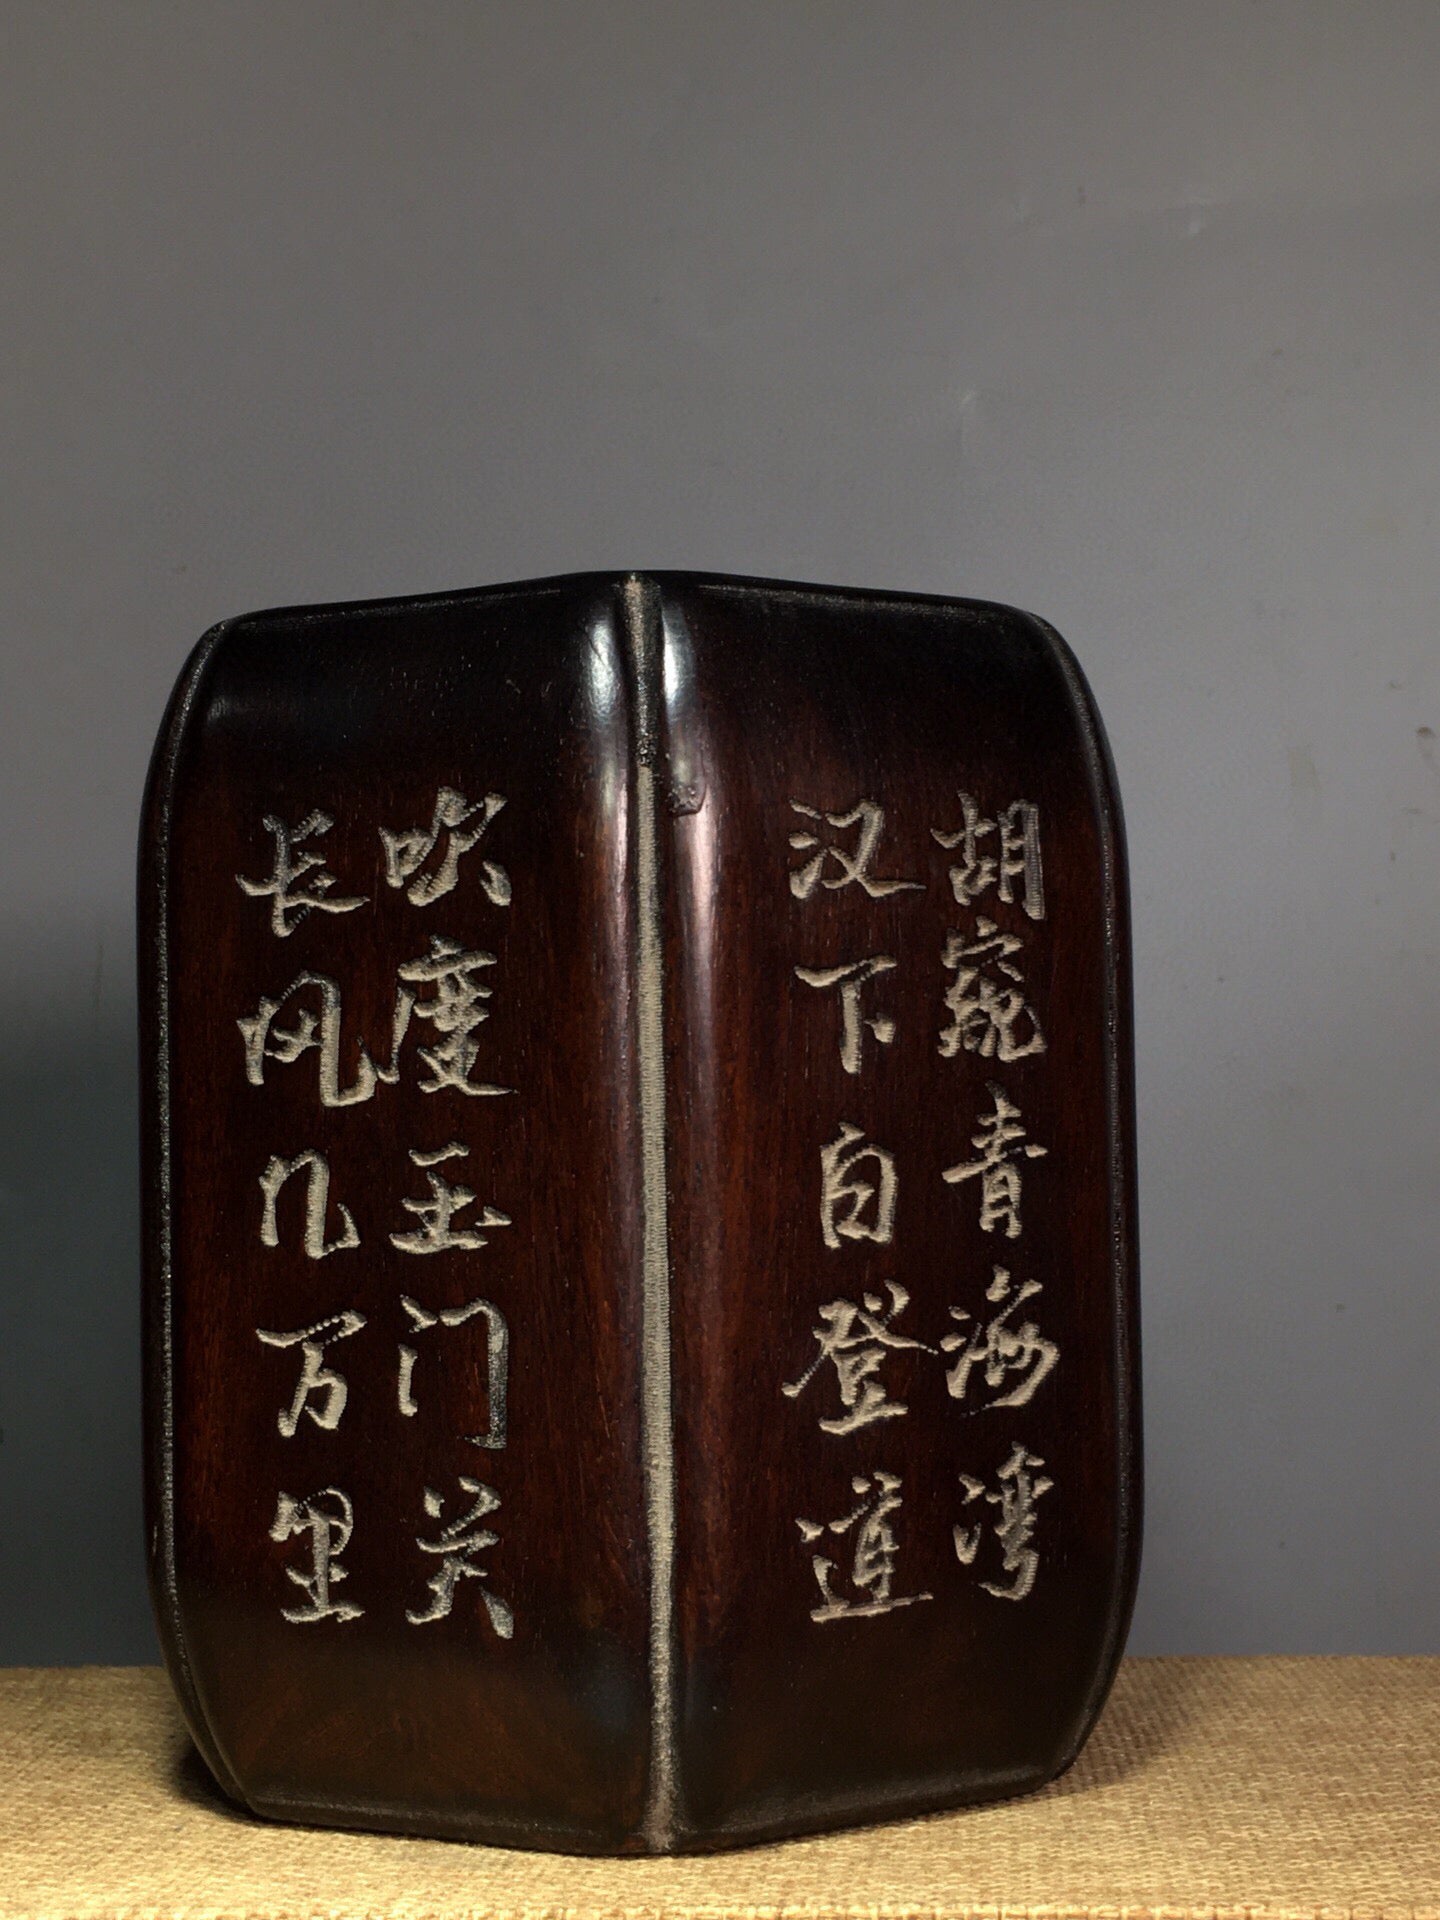 长风几万里
吹度玉门关
汉下白登道
胡窥青海湾